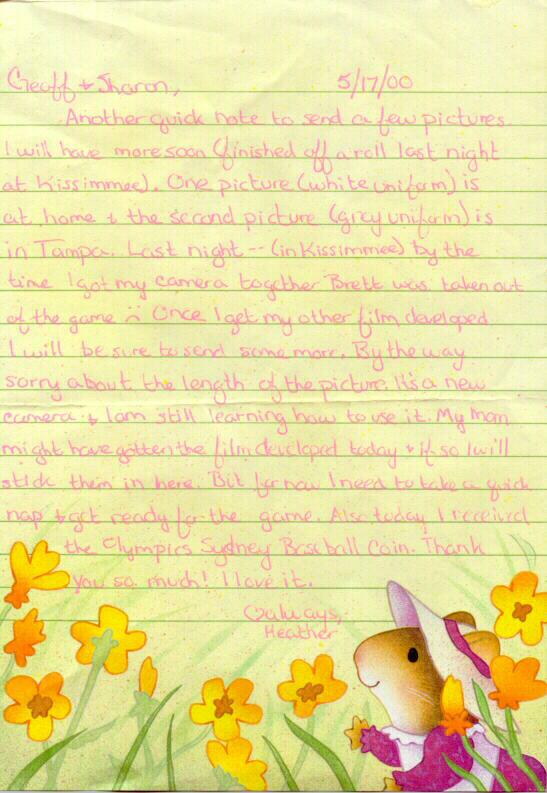 Geoff & Sharon, 5/17/00
Another quick note to send a few pictures.
I will have more soon (finished off a roll last night
at Kissimmee). One picture (white uniform) is
at home & the second picture (grey uniform) is
in Tampa. Last night -- (in Kissimmee) by the
time I got my camera together Brett was taken out
of the game :( Once I get my other film developed
I will be sure to send some more. By the way
sorry about the length of the picture. It's a new
camera & I am still learning how to use it. My Mom
might have gotten the film developed today & if so I will
stick them in here. But for now I need to take a quick
nap & get ready for the game. Also today I received
the Olympics Sydney Baseball Coin. Thank
you so much! I love it.
♡always,
Heather